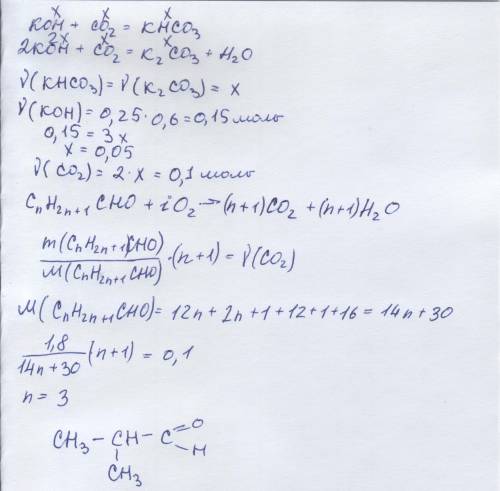 x x x
KOH + CO₂ = KHCO₃
2x x x
2KOH + CO₂ = K₂CO₃ + H₂O
ν(KHCO₃) = ν(K₂CO₃) = x
ν(KOH) = 0,25·0,6 = 0,15 моль
0,15 = 3x
x = 0,05
ν(CO₂) = 2·x = 0,1 моль
CₙH₂ₙ₊₁CHO + iO₂ → (n+1)CO₂ + (n+1)H₂O
m(CₙH₂ₙ₊₁CHO)/M(CₙH₂ₙ₊₁CHO) · (n+1) = ν(CO₂)
M(CₙH₂ₙ₊₁CHO) = 12n + 2n + 1 + 12 + 1 + 16 = 14n + 30
1,8/14n+30 (n+1) = 0,1
n = 3
CH₃ – CH – C =O –H
CH₃